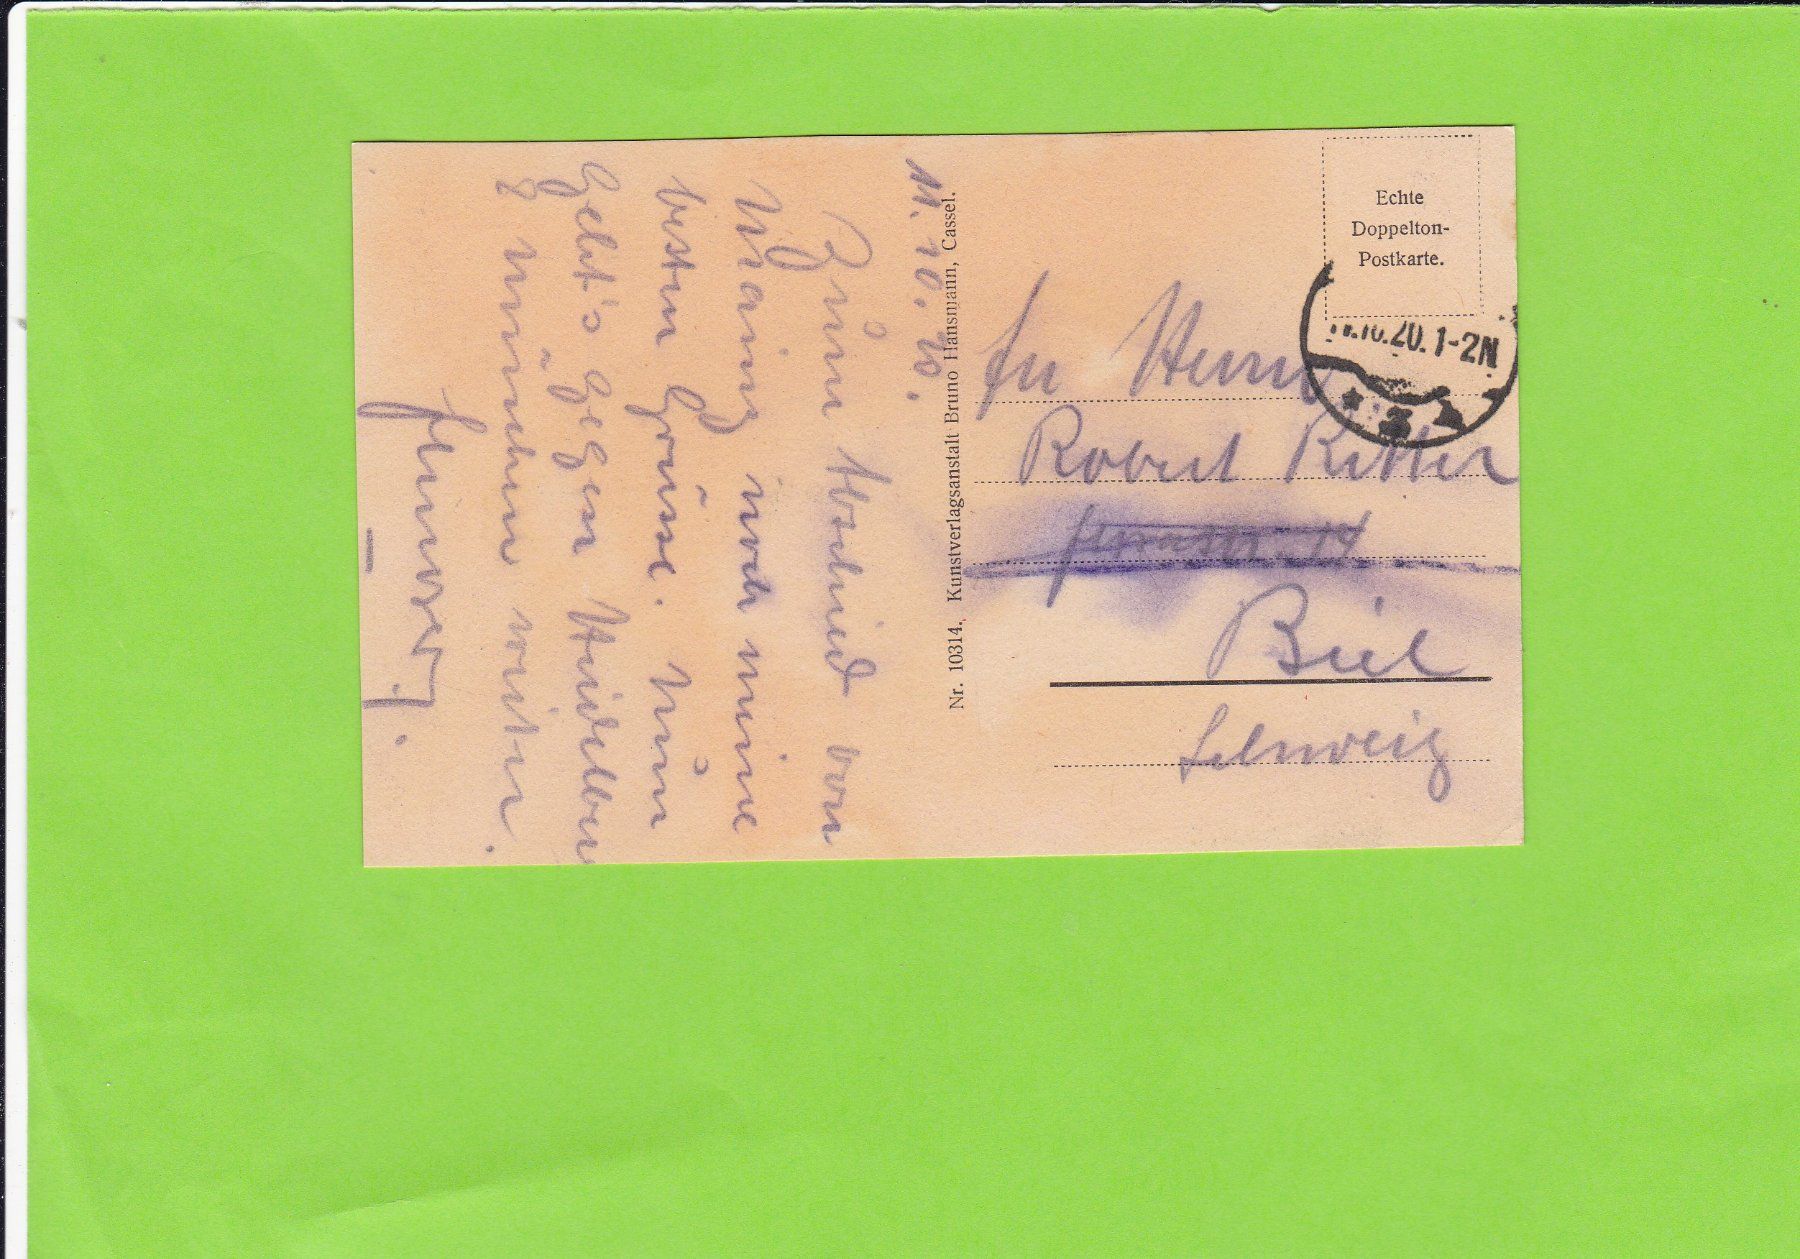 11. 10. 20.
Zum Abschied von
Mainz noch meine
besten Grüsse. Nun
geht's gegen Heidelberg
München weiter.
Nr. 10314. Kunstverlagsanstalt Bruno Hansmann, Cassel.
Echte
Doppelton-
Postkarte.
10.20.1-2N
Herrn
Robert Ritter
14
Biel
Schweiz